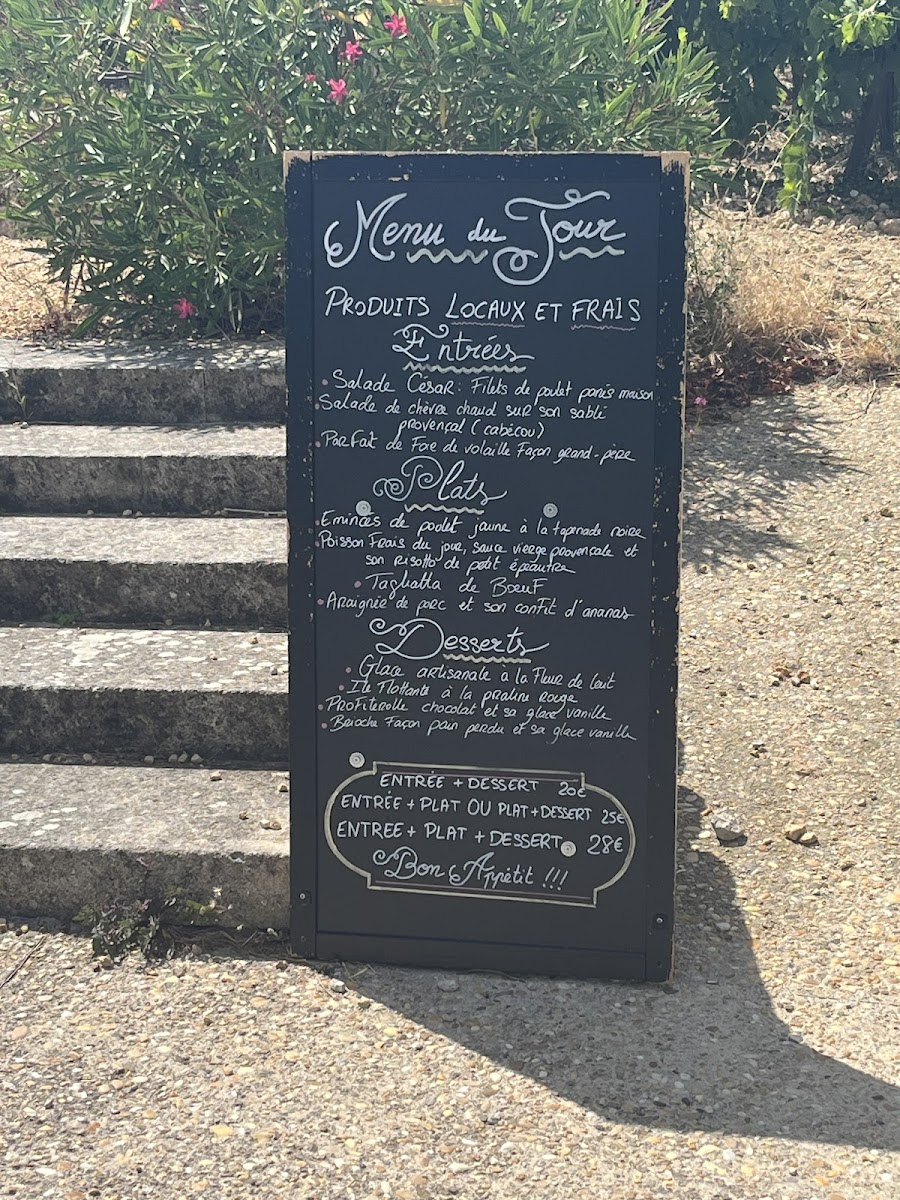 Menu du Jour
PRODUITS LOCAUX ET FRAIS
Entrées
• Salade César : Filets de poulet panés maison
• Salade de chèvre chaud sur son sablé
provençal (cabécou)
• Parfait de Foie de volaille Façon grand-père
Plats
• Emincés de poulet jaune à la tapenade noire
• Poisson Frais du jour, sauce vierge provençale et
son risotto de petit épeautre
• Tagliatta de Boeuf
• Araignée de porc et son confit d'ananas
Desserts
• Glace artisanale à la Fleur de lait
• Ile Flottante à la praline rouge
• Profiterolle chocolat et sa glace vanille
• Brioche Façon pain perdu et sa glace vanille
ENTRÉE + DESSERT 20€
ENTRÉE + PLAT OU PLAT + DESSERT 25€
ENTREE + PLAT + DESSERT 28€
Bon Appétit !!!